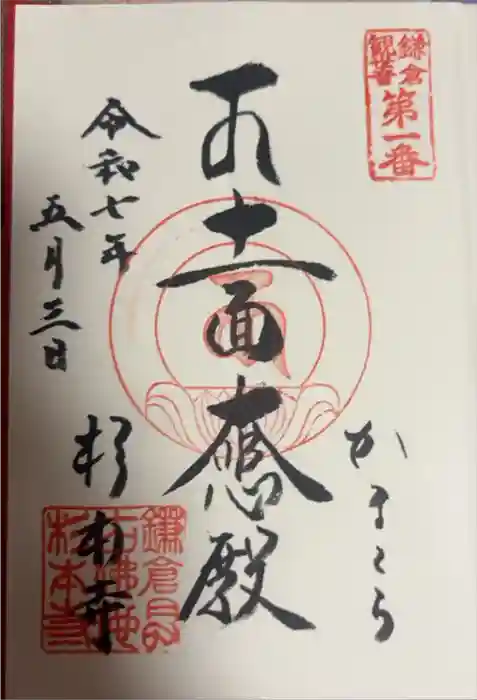 鎌倉
観音
第一番
かまくら
十一面大悲殿
令和七年
五月三日
杉本寺
鎌倉最
古佛地
杉本寺